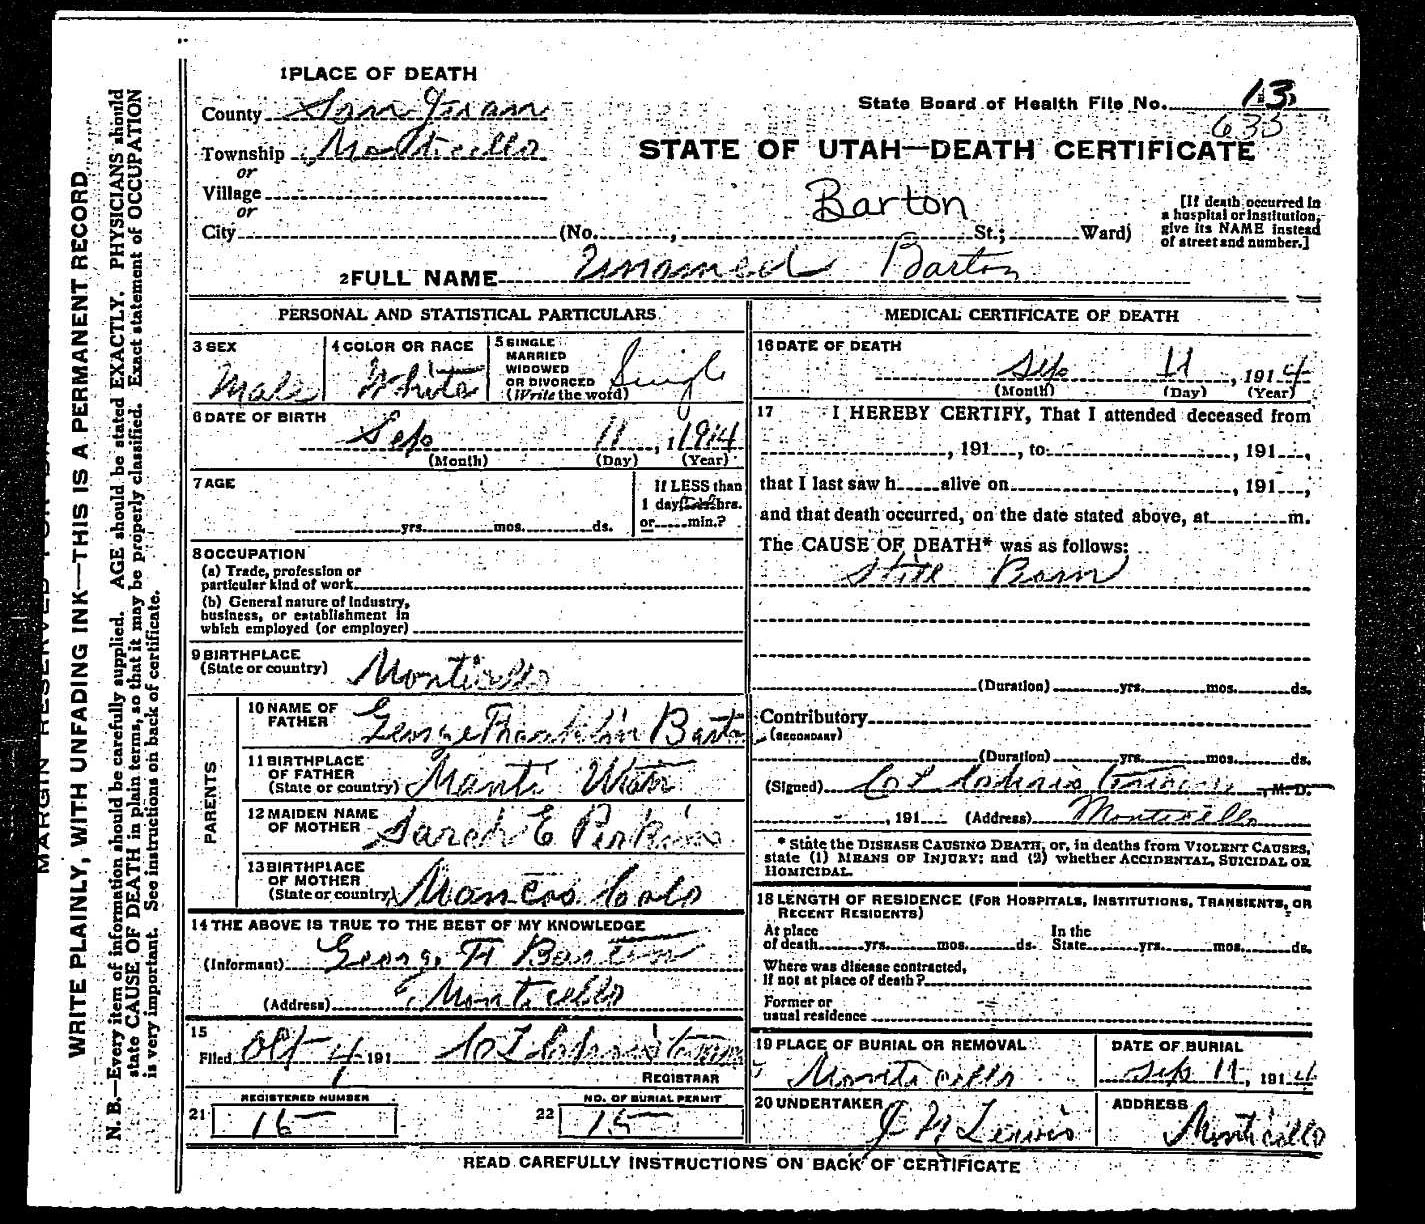 1 PLACE OF DEATH
County San Juan
State Board of Health File No. 13
633
Township Monticello
or
STATE OF UTAH—DEATH CERTIFICATE
Village
or
Barton
City (No. , St.; Ward)
[If death occurred in
a hospital or institution,
give its NAME instead
of street and number.]
2 FULL NAME Unnamed Barton
PERSONAL AND STATISTICAL PARTICULARS
3 SEX
Male
4 COLOR OR RACE
White
5 SINGLE
MARRIED
WIDOWED
OR DIVORCED
(Write the word)
Single
6 DATE OF BIRTH
Sep 11, 1914
(Month) (Day) (Year)
7 AGE
yrs. mos. ds.
If LESS than
1 day hrs.
or min.?
8 OCCUPATION
(a) Trade, profession or
particular kind of work
(b) General nature of industry,
business, or establishment in
which employed (or employer)
9 BIRTHPLACE
(State or country) Monticello
PARENTS
10 NAME OF
FATHER George Franklin Barton
11 BIRTHPLACE
OF FATHER
(State or country) Manti Utah
12 MAIDEN NAME
OF MOTHER Sarah E Perkins
13 BIRTHPLACE
OF MOTHER
(State or country) Mancos Colo
14 THE ABOVE IS TRUE TO THE BEST OF MY KNOWLEDGE
(Informant) George F Barton
(Address) Monticello
15
Filed Oct 4, 191
REGISTRAR
REGISTERED NUMBER
21 15
NO. OF BURIAL PERMIT
22 15
MEDICAL CERTIFICATE OF DEATH
16 DATE OF DEATH
Sep 11, 1914
(Month) (Day) (Year)
17 I HEREBY CERTIFY, That I attended deceased from
, 191 , to , 191 ,
that I last saw h alive on , 191 ,
and that death occurred, on the date stated above, at m.
The CAUSE OF DEATH* was as follows:
Still Born
(Duration) yrs. mos. ds.
Contributory
(SECONDARY)
(Duration) yrs. mos. ds.
(Signed) , M. D.
, 191 (Address) Monticello
* State the DISEASE CAUSING DEATH, or, in deaths from VIOLENT CAUSES,
state (1) MEANS OF INJURY; and (2) whether ACCIDENTAL, SUICIDAL OR
HOMICIDAL.
18 LENGTH OF RESIDENCE (FOR HOSPITALS, INSTITUTIONS, TRANSIENTS, OR
RECENT RESIDENTS)
At place
of death yrs. mos. ds.
In the
State yrs. mos. ds.
Where was disease contracted,
if not at place of death?
Former or
usual residence
19 PLACE OF BURIAL OR REMOVAL
Monticello
DATE OF BURIAL
Sep 11, 1914
20 UNDERTAKER
Lewis
ADDRESS
Monticello
READ CAREFULLY INSTRUCTIONS ON BACK OF CERTIFICATE
MARGIN RESERVED FOR
WRITE PLAINLY, WITH UNFADING INK—THIS IS A PERMANENT RECORD
N. B.—Every item of information should be carefully supplied. AGE should be stated EXACTLY. PHYSICIANS should
state CAUSE OF DEATH in plain terms, so that it may be properly classified. Exact statement of OCCUPATION
is very important. See instructions on back of certificate.